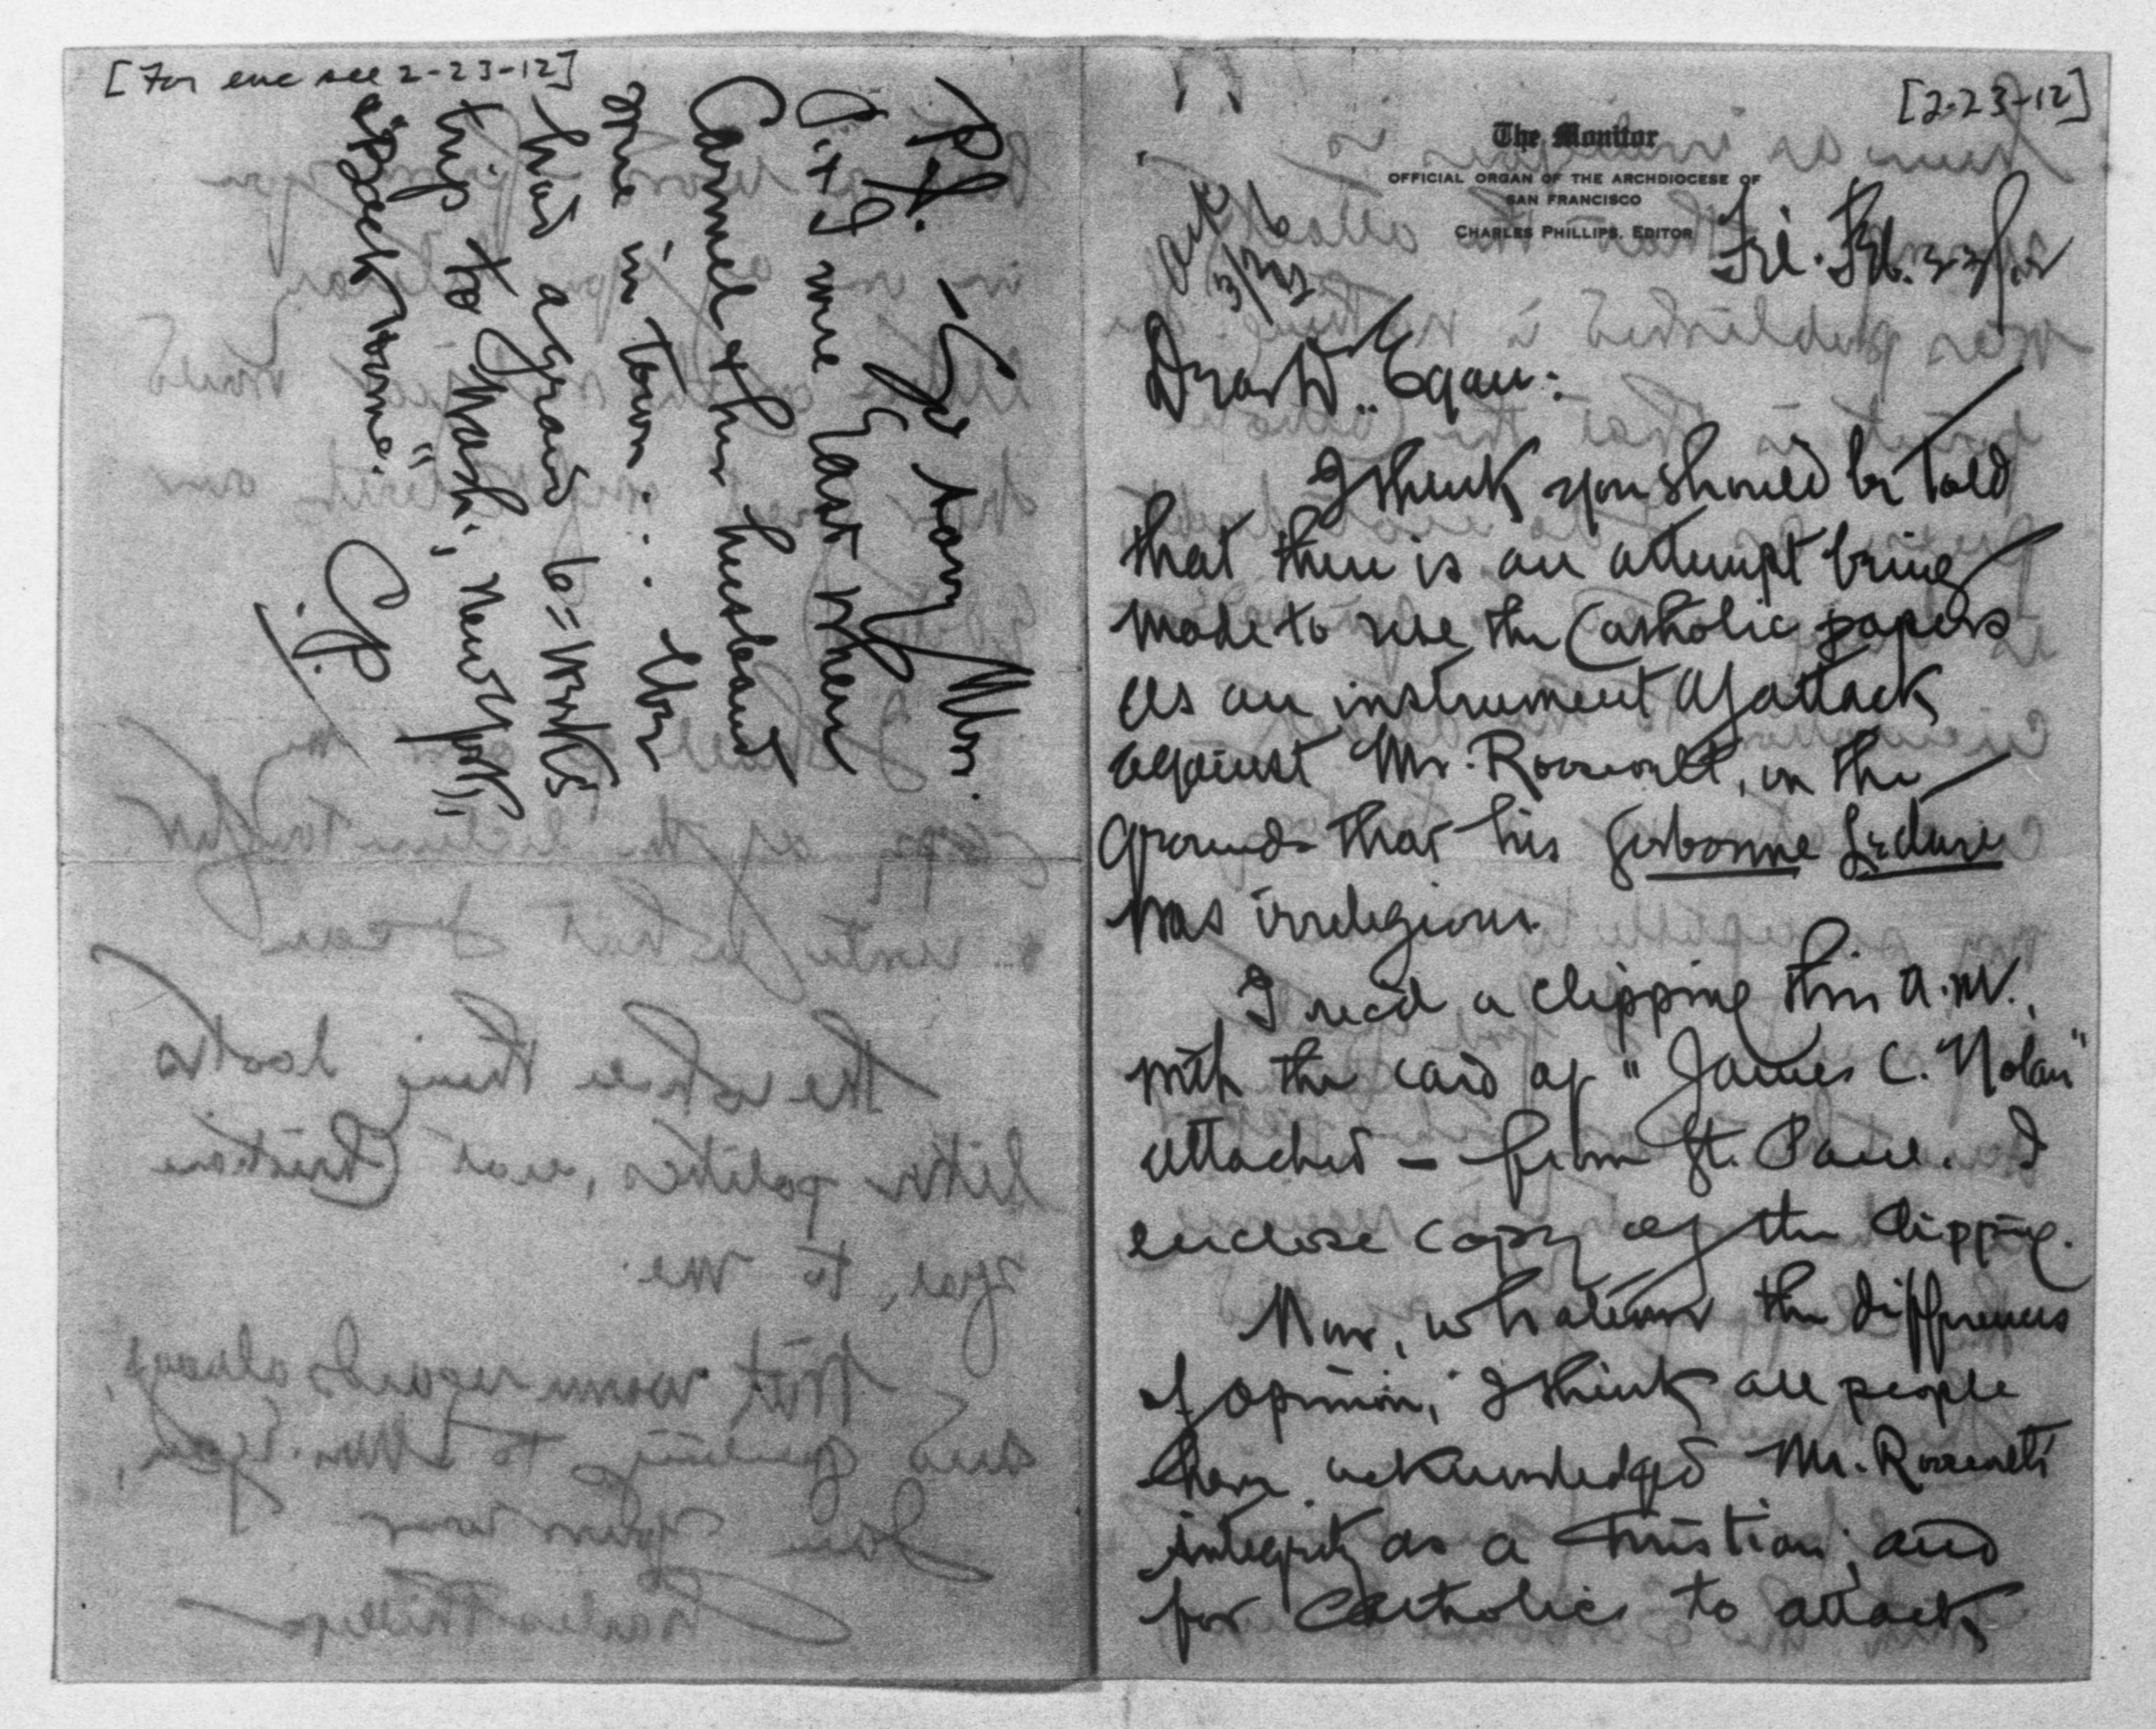 [2-23-12]
The Monitor
OFFICIAL ORGAN OF THE ARCHDIOCESE OF
SAN FRANCISCO
CHARLES PHILLIPS, EDITOR
Fri. Feb. 23/12
Ack
3/2/12
Dear Dr. Egan:
I think you should be told
that there is an attempt being
made to use the Catholic papers
as an instrument of attack
against Mr. Roosevelt, on the
grounds that his Sorbonne Lecture
was irreligious.
I rec'd a clipping this a.m.,
with the card of "James C. Nolan"
attached — from St. Paul. I
enclose copy of the clipping.
Now, whatever the differences
of opinion, I think all people
have acknowledged Mr. Roosevelt's
integrity as a Christian; and
for Catholics to attack
[For enc see 2-23-12]
P.S. — So sorry Mrs.
P. & I were East when
Carmel & her husband
were in town. They
had a grand 6=weeks
trip to Wash., New York,
& "back home."
C.P.